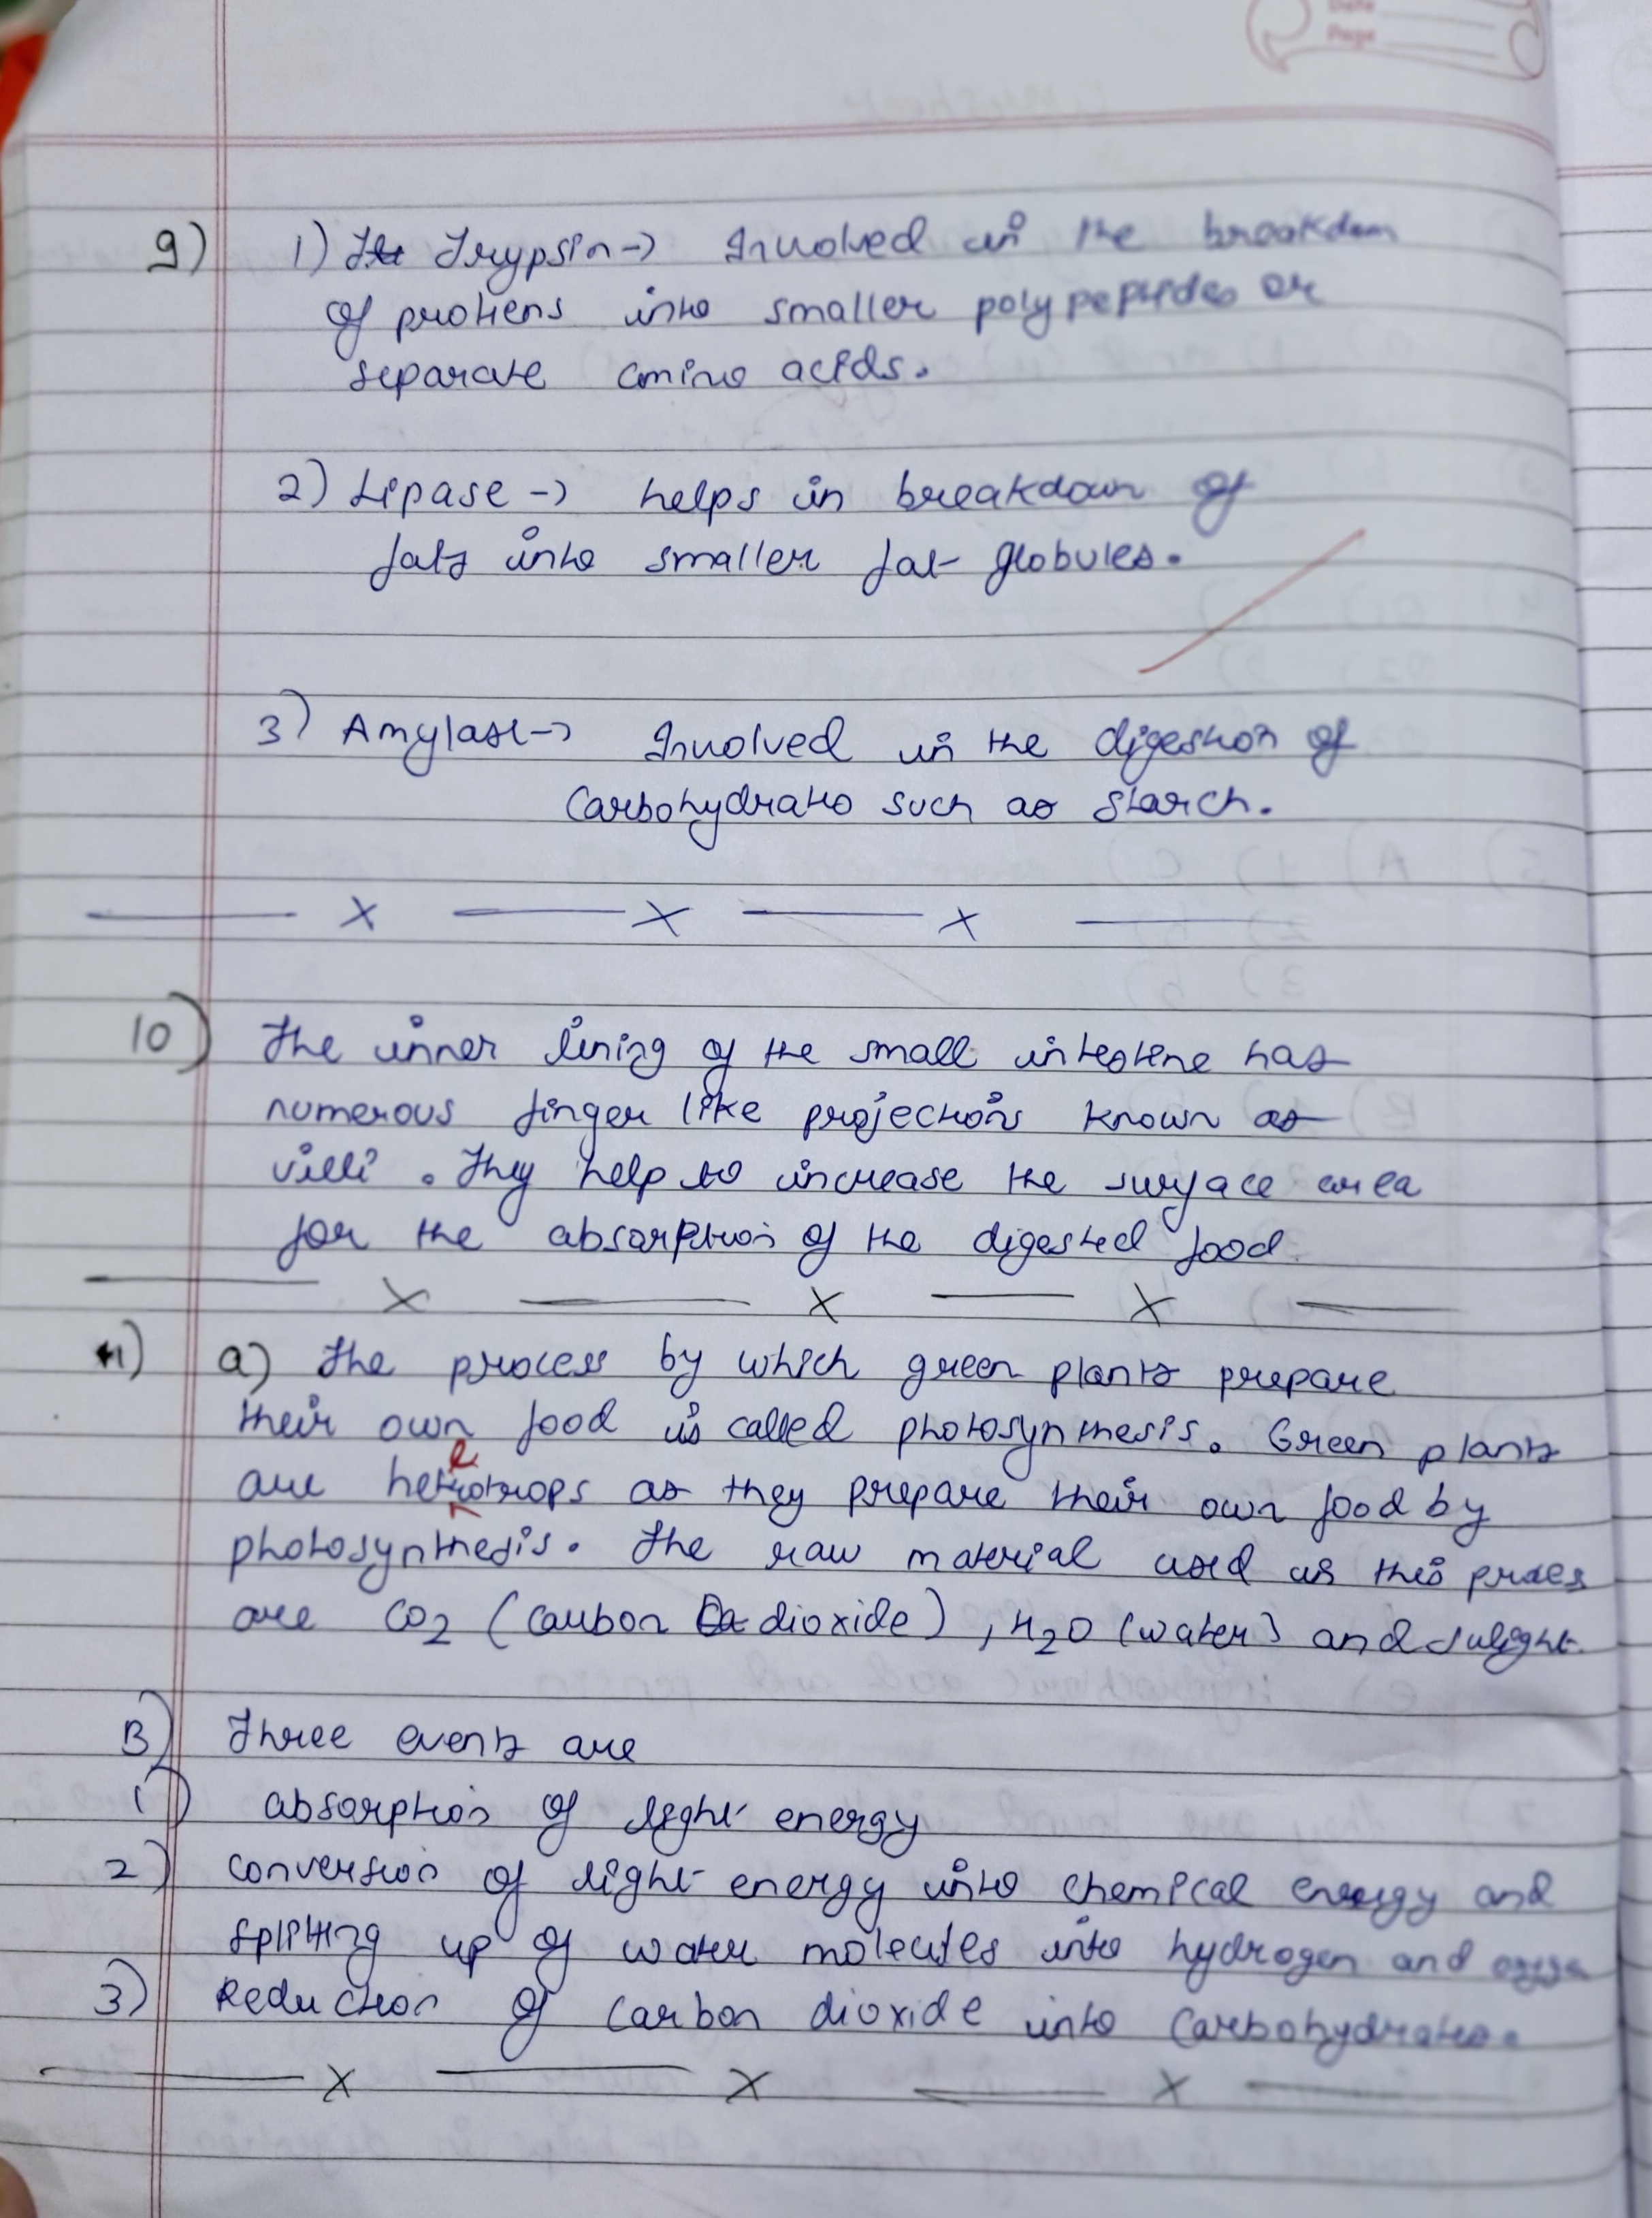 Date
Page
9) 1) Trypsin -> Involved in the breakdom
of protiens into smaller polypeptides or
separate amino acids.
2) Lipase -> helps in breakdown of
fats into smaller fat globules.
3) Amylase -> Involved in the digestion of
Carbohydrates such as starch.
x x x
10) The inner lining of the small intestine has
numerous finger like projections known as
villi. They help to increase the surface area
for the absorption of the digested food.
x x x
11) a) The process by which green plants prepare
their own food is called photosynthesis. Green plants
are heterotrops as they prepare their own food by
photosynthesis. The raw material used in this proces
are CO2 (Carbon dioxide), H2O (water) and sulight.
B) Three events are
1) absorption of light energy
2) conversion of light energy into chemical energy and
splitting up of water molecules into hydrogen and
3) Reduction of Carbon dioxide into Carbohydrates.
x x x